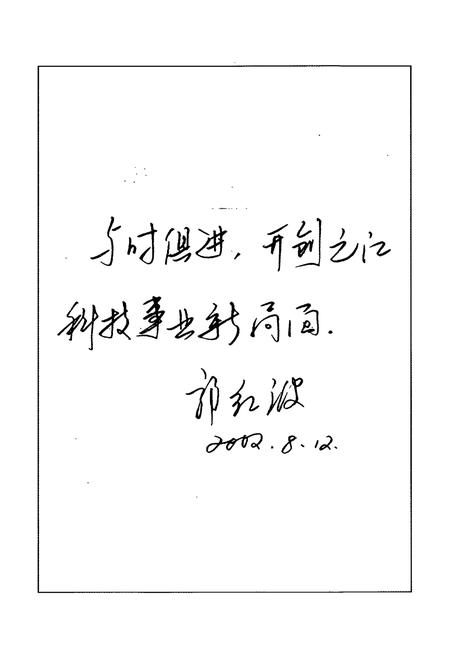 与时俱进，开创之江
科技事业新局面．
郭红波
2002.8.12.